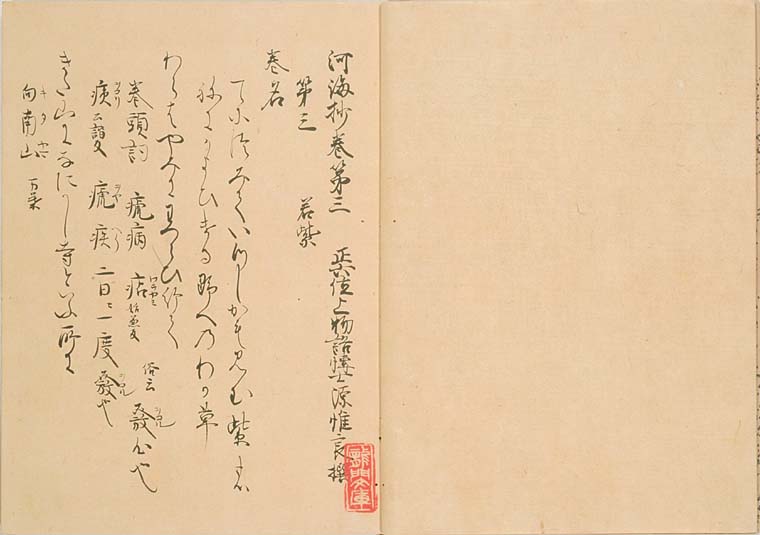 河海抄巻第三 正六位上物語博士源惟良撰
第三 若紫
巻名
てにつみていつしかもみむ紫の
ねにかよひける野へのわか草
わらはやみにわつらひ給て
巻頭詞 瘧病
俗云
二日ニ一度
きた山になにかし寺といふ所に
向南山 万葉
キタ 山
龍門文庫